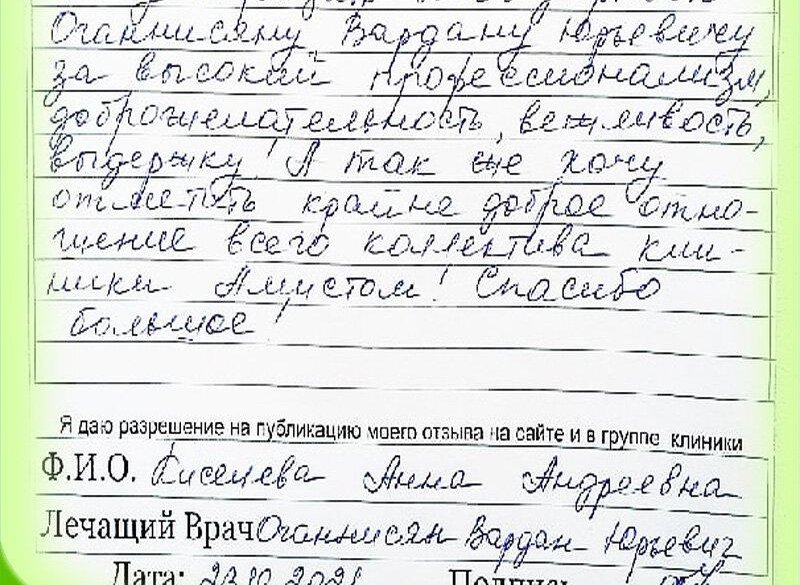 Оганнисяну Вардану Юрьевичу
за высокий профессионализм,
доброжелательность, вежливость,
выдержку! А так же хочу
отметить крайне доброе отно-
шение всего коллектива кли-
ники Амистом! Спасибо
большое!
Я даю разрешение на публикацию моего отзыва на сайте и в группе клиники
Ф.И.О. Киселева Анна Андреевна
Лечащий Врач Оганнисян Вардан Юрьевич
Дата: 23.10.2021 Подпись: